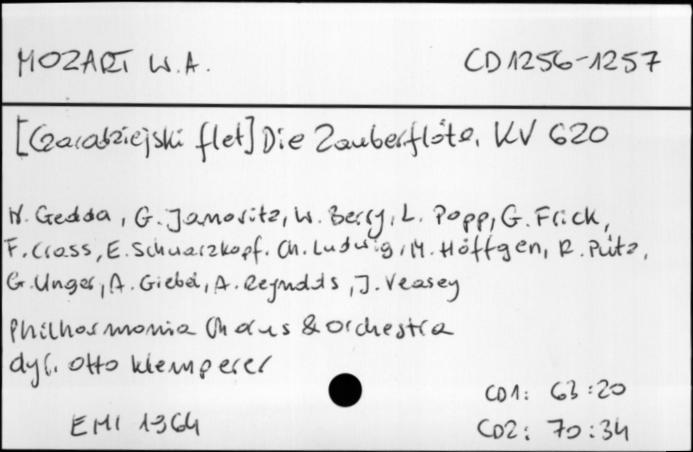 MOZART W.A. CD 1256-1257
[Czarodziejski flet] Die Zauberflöte, KV 620
N. Gedda, G. Janovitz, W. Berry, L. Popp, G. Frick,
F. Crass, E. Schwarzkopf. Ch. Ludwig, M. Höffgen, R. Pütz,
G. Unger, A. Giebel, A. Reynolds, J. Veasey
Philharmonia Chorus & Orchestra
dyr. Otto Klemperer
CD1: 63:20
EMI 1364 CD2: 70:34